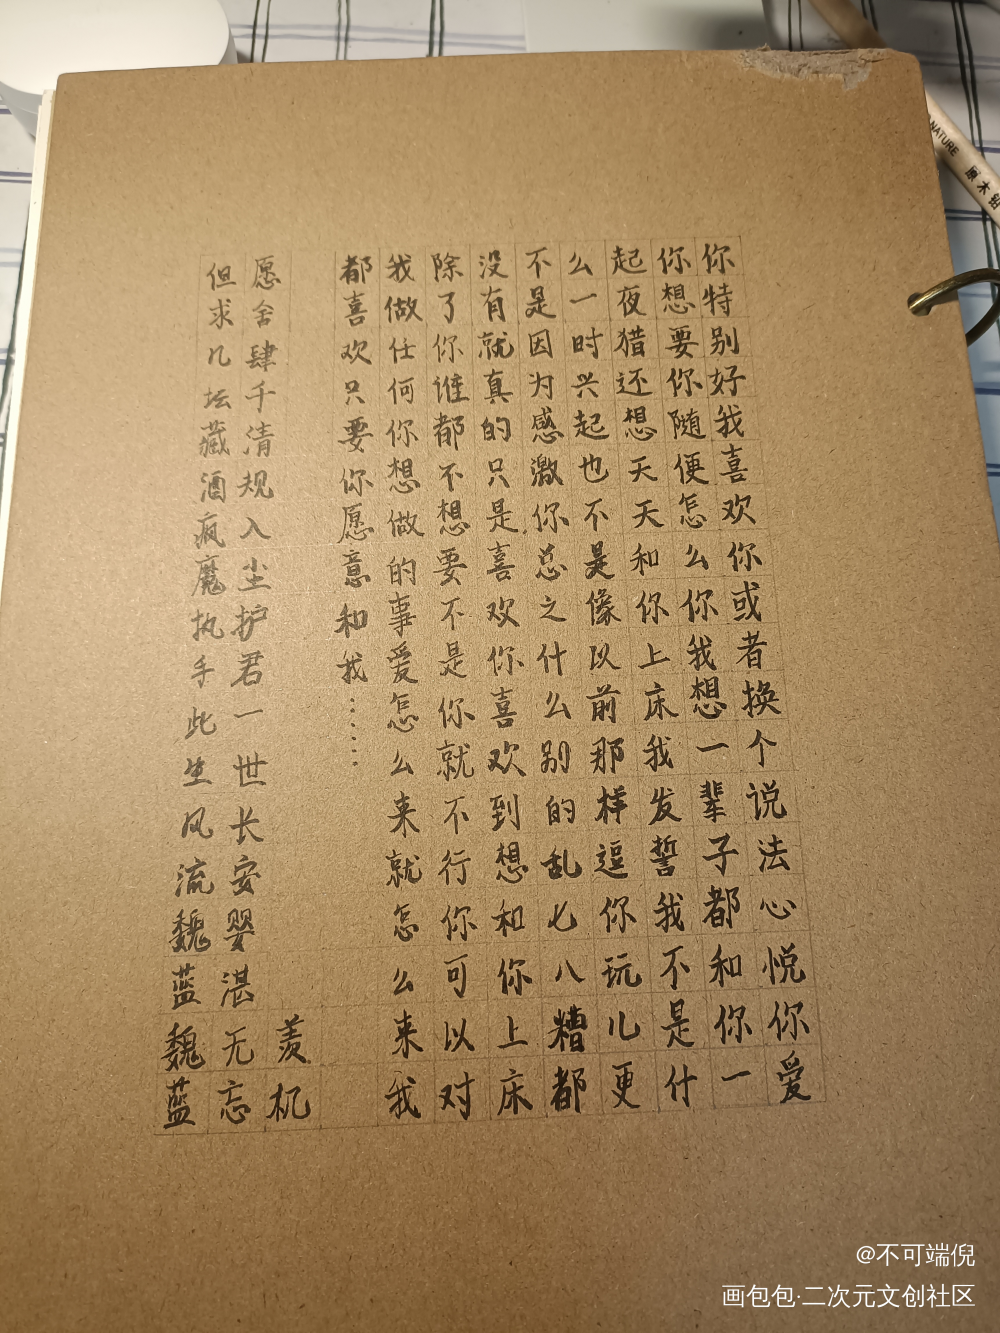 你特别好我喜欢你或者换个说法心悦你爱
你想要你随便怎么你我想一辈子都和你一
起夜猎还想天天和你上床我发誓我不是什
么一时兴起也不是像以前那样逗你玩儿更
不是因为感激你总之什么别的乱七八糟都
没有就真的只是喜欢你喜欢到想和你上床
除了你谁都不想要不是你就不行你可以对
我做任何你想做的事爱怎么来就怎么来我
都喜欢只要你愿意和我……
羡机
愿舍肆千清规入尘护君一世长安婴湛无忘
但求几坛藏酒疯魔执手此生风流魏蓝魏蓝
NATURE 原木铅
@不可端倪
画包包·二次元文创社区